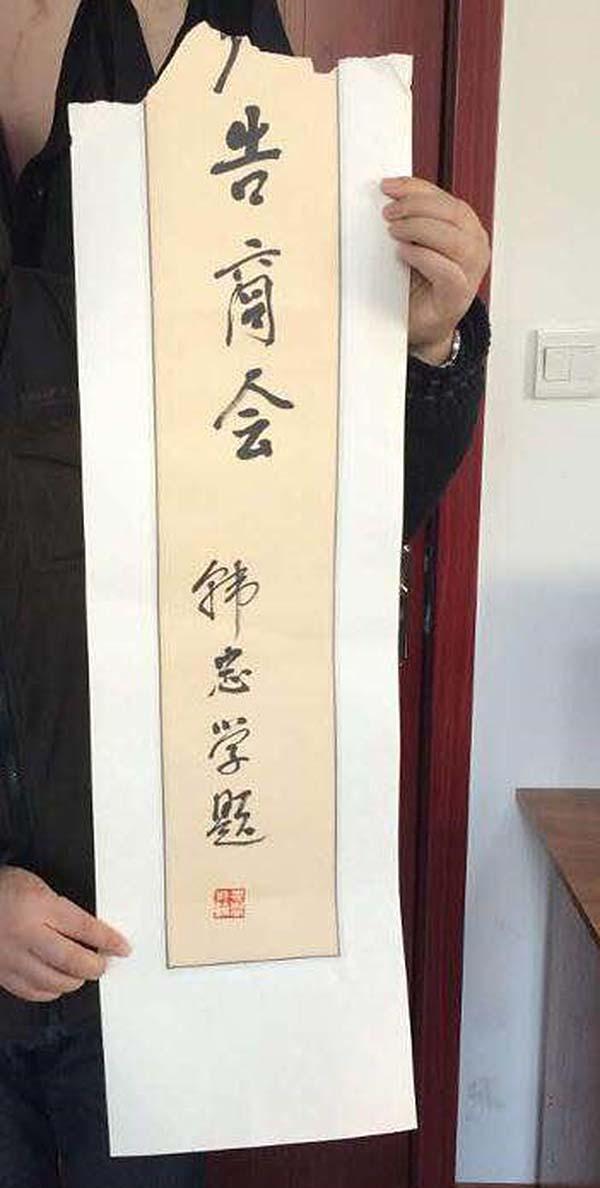 广告商会
韩忠学题